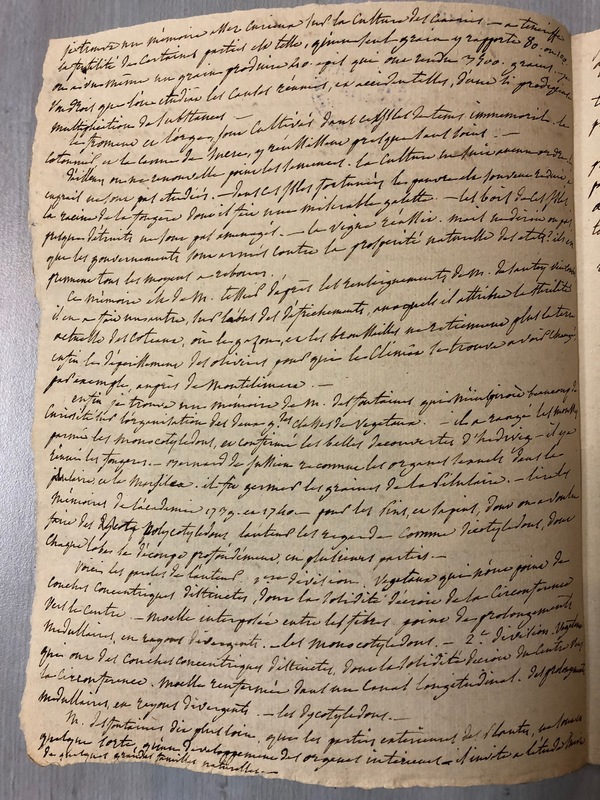 se trouve un mémoire assez curieux sur la Culture des Canaries. — a teneriffe
la fertilité de Certaines parties est telle, qu'un seul grain y rapporte 80. ou 100.
on a vu même un grain produire épis que ont rendu grains. je
voudrois que l'on étudiat les Causes réunies, ou accidentelles, d'une si prodigieuse
multiplication de substances. —
le froment et l'orge, sont Cultivés dans ces isles de tems immémorial. le
cotonnier et la Canne de Sucre, y réussissent presque sans soins. —
d'ailleurs on ne renouvelle point les semences. la Culture ne suit aucun ordre, les
engrais ne sont pas étudiés. — dans ces isles fortunées le pauvre est souvent reduit à
la racine de la fougère dont il fait une misérable galette. — les bois de ces isles
presque détruits ne sont pas aménagés. — la vigne réussit. mais ne diroit on pas
que les gouvernements sont armés contre la prosperité naturelle des etats? ils en
prennent tous les moyens a rebours.
Ce mémoire est de M. tessier d'après les renseignements de M.
il en a fait un autre, sur l'abus des défrichements, auxquels il attribue la stérilité
actuelle des coteaux, ou le gazon, et les broussailles ne retiennent plus la terre
enfin le dépérissement des oliviers pour qui le Climat se trouve avoir Changé,
par exemple, auprès de Montelimart. —
enfin se trouve un mémoire de M. des fontaines qui m'inspiroit beaucoup de
Curiosité sur l'organisation des deux gdes classes de Vegetaux. — il a rangé les mousses
parmi les monocotyledons, et confirmé les belles decouvertes d'hedwig — il y a
réuni les fougeres. — Bernard de Jussieu reconnut les organes sexuels dans la
pilulaire, et le Marsilea. il fit germer les graines de la Pilulaire. — lire les
mémoires de l'academie 1739. et 1740. — pour les Pins, et sapins, dont on a voulu
faire des Polycotyledons l'auteur les regarde comme dicotyledons, dont
Chaque lobe se découpe profondément, en plusieurs parties. —
Voici les paroles de l'auteur 1ere division. Vegetaux qui n'ont point de
couches concentriques distinctes, dont la solidité décroit de la Circonference
vers le Centre. — moelle interposée entre les fibres. point de prolongements
médullaires, en rayons divergents. — les monocotyledons. — 2e division. Vegetaux
qui ont des couches concentriques distinctes, dont la solidité decroit du Centre vers
la Circonference. moelle renfermée dans un Canal longitudinal. des prolongements
medullaires, en rayons divergents. — les dycotyledons. —
M. desfontaines dit plus loin, que les parties exterieures des Plantes, ne sont en
quelque sorte, qu'un développement des organes interieurs — il invite a l'étude
de quelques grandes familles naturelles. —